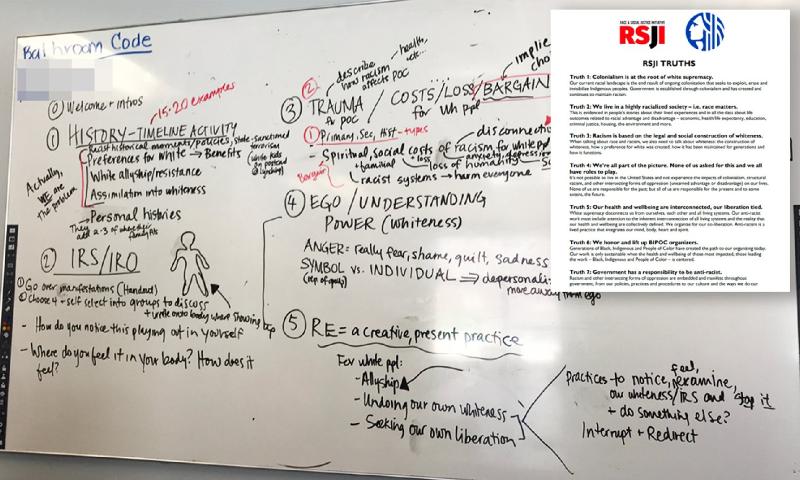 Bathroom Code
⓪ Welcome + intros
15-20 examples
① HISTORY-TIMELINE ACTIVITY
Racist historical moments/policies, state-sanctioned terrorism
Preferences for white → Benefits
(white kids on postcard @ lynching)
White allyship/resistance
Assimilation into whiteness
Actually, WE are the problem
→ Personal histories
They add 2-3 of where their family fits
② IRS/IRO
① Go over manifestations (Handout)
② Choose 4 + self select into groups to discuss
+ write onto body where showing up
- How do you notice this playing out in yourself
- Where do you feel it in your body? How does it feel?
describe how racism affects POC
health, etc...
②
③ TRAUMA / COSTS/LOSS/BARGAIN
for POC
for Wh ppl
① Primary, Sec, Hist - types
disconnecti
- Spiritual, social costs of racism for white ppl
+ familial
+ loss
anxiety, depression
→ loss of humanity
Bargain
racist systems → harm everyone
④ EGO / UNDERSTANDING
POWER (Whiteness)
ANGER = really fear, shame, guilt, sadness
SYMBOL vs. INDIVIDUAL ⇒ depersonali
move away from ego
⑤ RE = a creative, present practice
For white ppl:
- Allyship
- Undoing our own whiteness
- Seeking our own liberation
Practices to notice, feel, reexamine,
our whiteness/IRS and stop it
+ do something else?
Interrupt + Redirect
RACE & SOCIAL JUSTICE INITIATIVE
RSJI
RSJI TRUTHS
Truth 1: Colonialism is at the root of white supremacy.
Our current racial landscape is the end result of ongoing colonialism that seeks to exploit, erase and
invisibilize Indigenous peoples. Government is established through colonialism and has created and
continues to maintain racism.
Truth 2: We live in a highly racialized society – i.e. race matters.
This is evidenced in people's stories about their lived experiences and in all the data about life
outcomes related to racial advantage and disadvantage – economics, health/life expectancy, education,
criminal justice, housing, the environment and more.
Truth 3: Racism is based on the legal and social construction of whiteness.
When talking about race and racism, we also need to talk about whiteness: the construction of
whiteness, how a preference for white was created, how it has been maintained for generations and
how it functions.
Truth 4: We're all part of the picture. None of us asked for this and we all
have roles to play.
It's not possible to live in the United States and not experience the impacts of colonialism, structural
racism, and other intersecting forms of oppression (unearned advantage or disadvantage) on our lives.
None of us are responsible for the past; but all of us are responsible for the present and to some
extent, the future.
Truth 5: Our health and wellbeing are interconnected, our liberation tied.
White supremacy disconnects us from ourselves, each other and all living systems. Our anti-racist
work must include attention to the inherent interconnection of all living systems and the reality that
our health and wellbeing are collectively defined. We organize for our co-liberation. Anti-racism is a
lived practice that integrates our mind, body, heart and spirit.
Truth 6: We honor and lift up BIPOC organizers.
Generations of Black, Indigenous and People of Color have created the path to our organizing today.
Our work is only sustainable when the health and wellbeing of those most impacted, those leading
the work – Black, Indigenous and People of Color – is centered.
Truth 7: Government has a responsibility to be anti-racist.
Racism and other intersecting forms of oppression are embedded and manifests throughout
government, from our policies, practices and procedures to our culture and the ways we do our